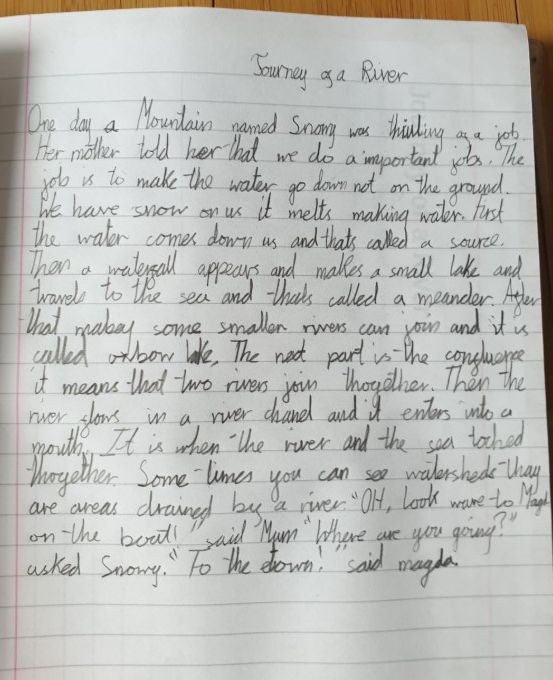 Journey of a River
One day a Mountain named Snowy was thinking of a job.
Her mother told her that we do a important jobs. The
job is to make the water go down not on the ground.
We have snow on us it melts making water. First
the water comes down us and thats called a source.
Then a waterfall appears and makes a small lake and
travels to the sea and thats called a meander. After
that mabay some smaller rivers can join and it is
called oxbow lake, The next part is the confluence
it means that two rivers join thogether. Then the
river flows in a river chanel and it enters into a
mouth. It is when the river and the sea toched
thogether. Some times you can see watersheds thay
are areas drained by a river. "OH, Look ware to
on the boat!" said Mum "Where are you going?"
asked Snowy. "To the town!" said magda.